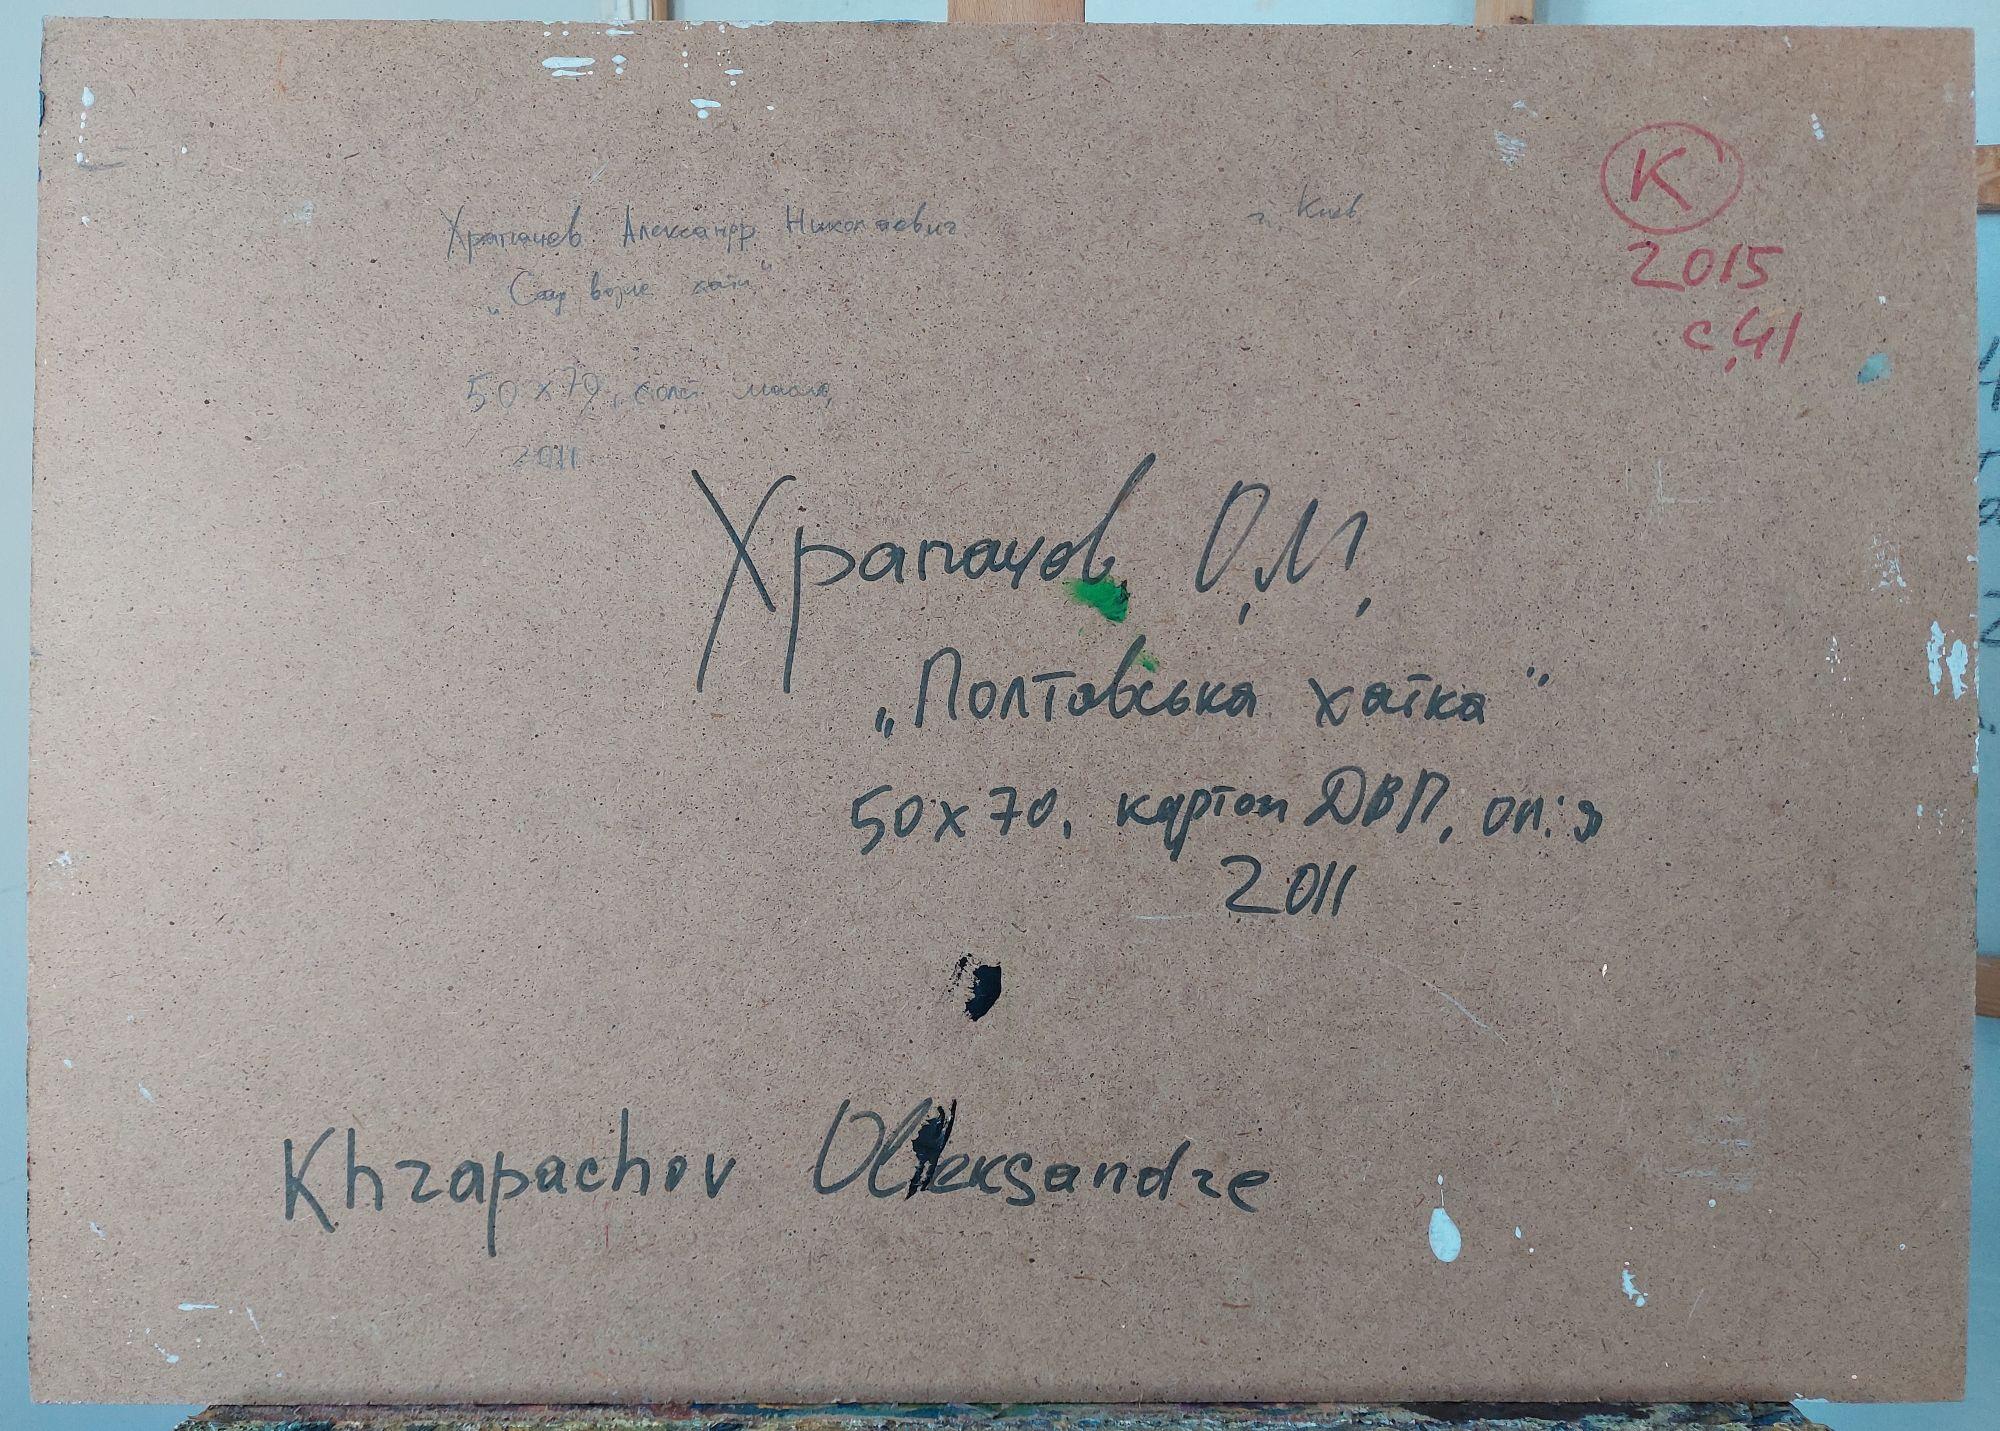 Храпачев Александр Николаевич г. Киев
„Сад возле хаты"
50 х 70, масло,
2011
К
2015
с. 41
Храпачов О.М.
„Полтавська хатка"
50 х 70, картон ДВП, олія
2011
Khrapachov Oleksandre